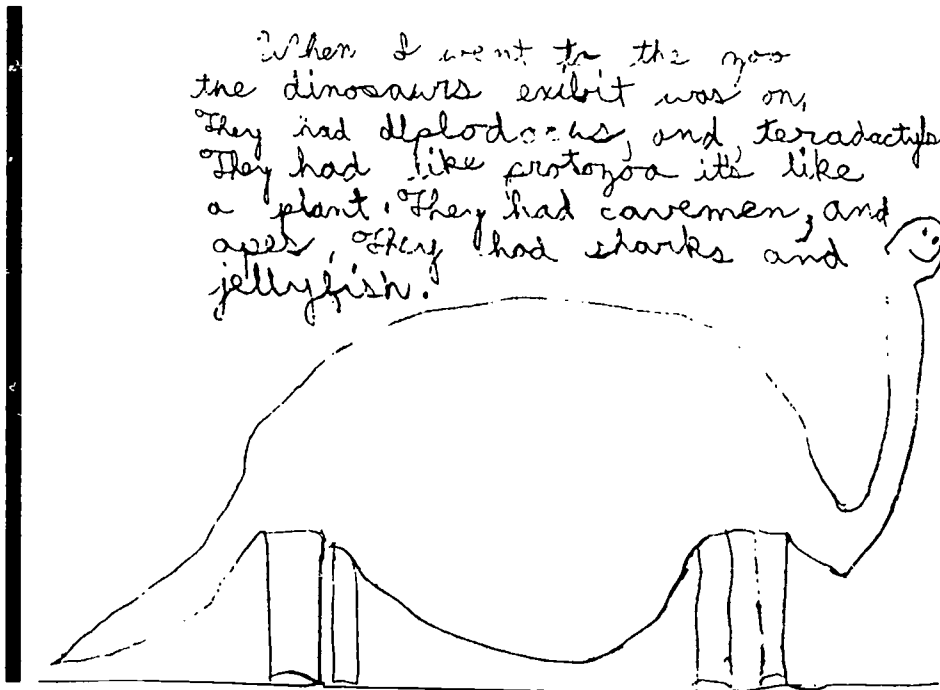 When I went to the zoo
the dinosaurs exibit was on,
They had diplodocus, and, teradactyls
They had like protozoa it's like
a plant. They had cavemen, and
apes, They had sharks and
jellyfish.